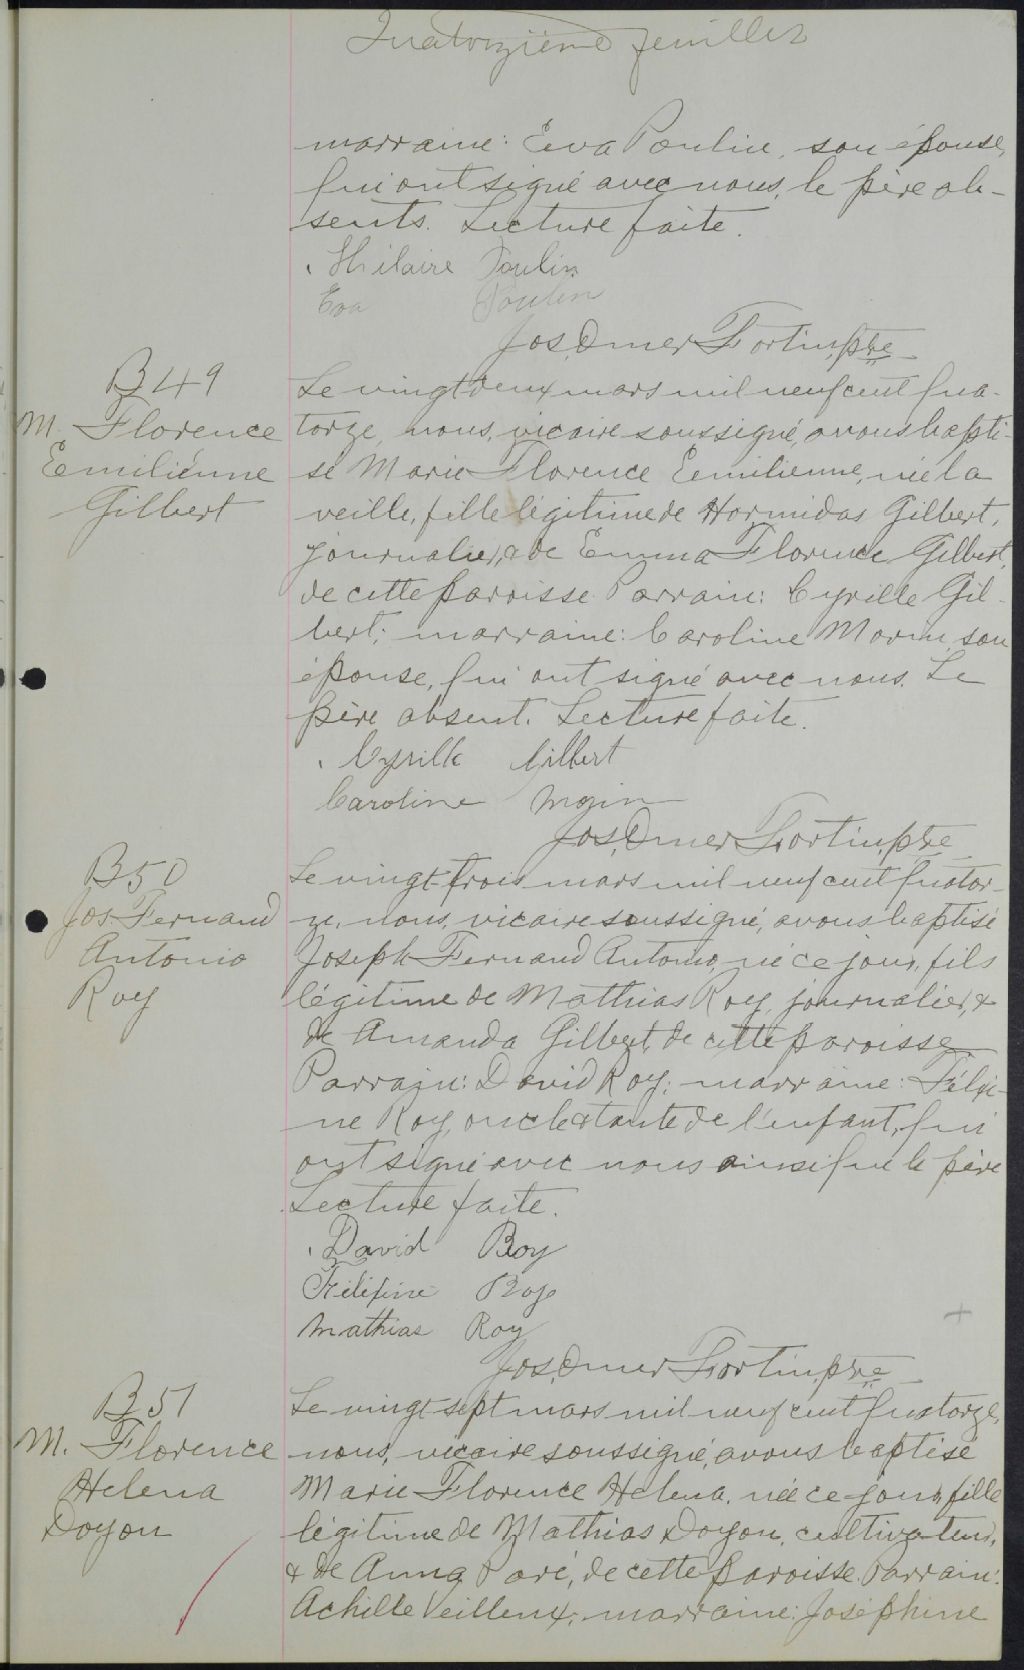 Quatorzième feuillet
marraine: Eva Poulin, son épouse,
qui ont signé avec nous, le père ab-
sents. Lecture faite.
Hilaire Poulin
Eva Poulin
Jos. Omer Fortin, ptre
B 49
M. Florence
Emiliénne
Gilbert
Le vingt deux mars mil neuf cent qua-
torze, nous, vicaire soussigné, avons bapti-
sé Marie Florence Emilienne, née la
veille, fille légitime de Hormidas Gilbert,
journalier, & de Emma Florence Gilbert,
de cette paroisse. Parrain: Cyrille Gil-
bert; marraine: Caroline Morin, son
épouse, qui ont signé avec nous. Le
père absent. Lecture faite.
Cyrille Gilbert
Caroline
Jos. Omer Fortin, ptre
B 50
Jos Fernand
Antonio
Roy
Le vingt-trois mars mil neuf cent quator-
ze, nous, vicaire soussigné, avons baptisé
Joseph Fernand Antonio, né ce jour, fils
légitime de Mathias Roy, journalier, &
de Amanda Gilbert, de cette paroisse
Parrain: David Roy; marraine: Félixi-
ne Roy, oncle & tante de l'enfant, qui
ont signé avec nous ainsi que le père
Lecture faite.
David Roy
Félixine Roy
Mathias Roy
Jos. Omer Fortin, ptre
B 51
M. Florence
Helena
Doyon
Le vingt-sept mars mil neuf cent quatorze,
nous, vicaire soussigné, avons baptisé
Marie Florence Helena, née ce jour, fille
légitime de Mathias Doyon, cultivateur,
& de Anna Paré, de cette paroisse. Parrain:
Achille Veilleux; marraine: Joséphine